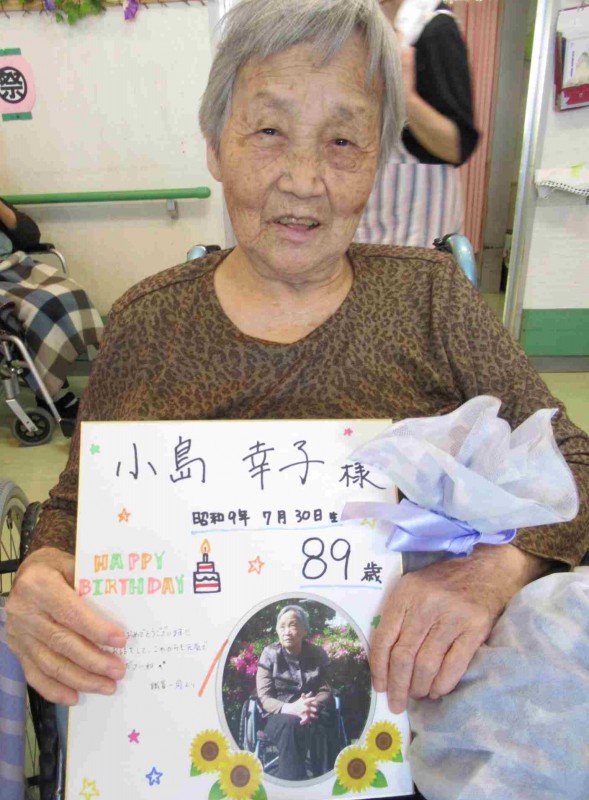 祭
小島 幸子 様
昭和9年 7月30日生
89歳
HAPPY
BIRTHDAY
職員一同より